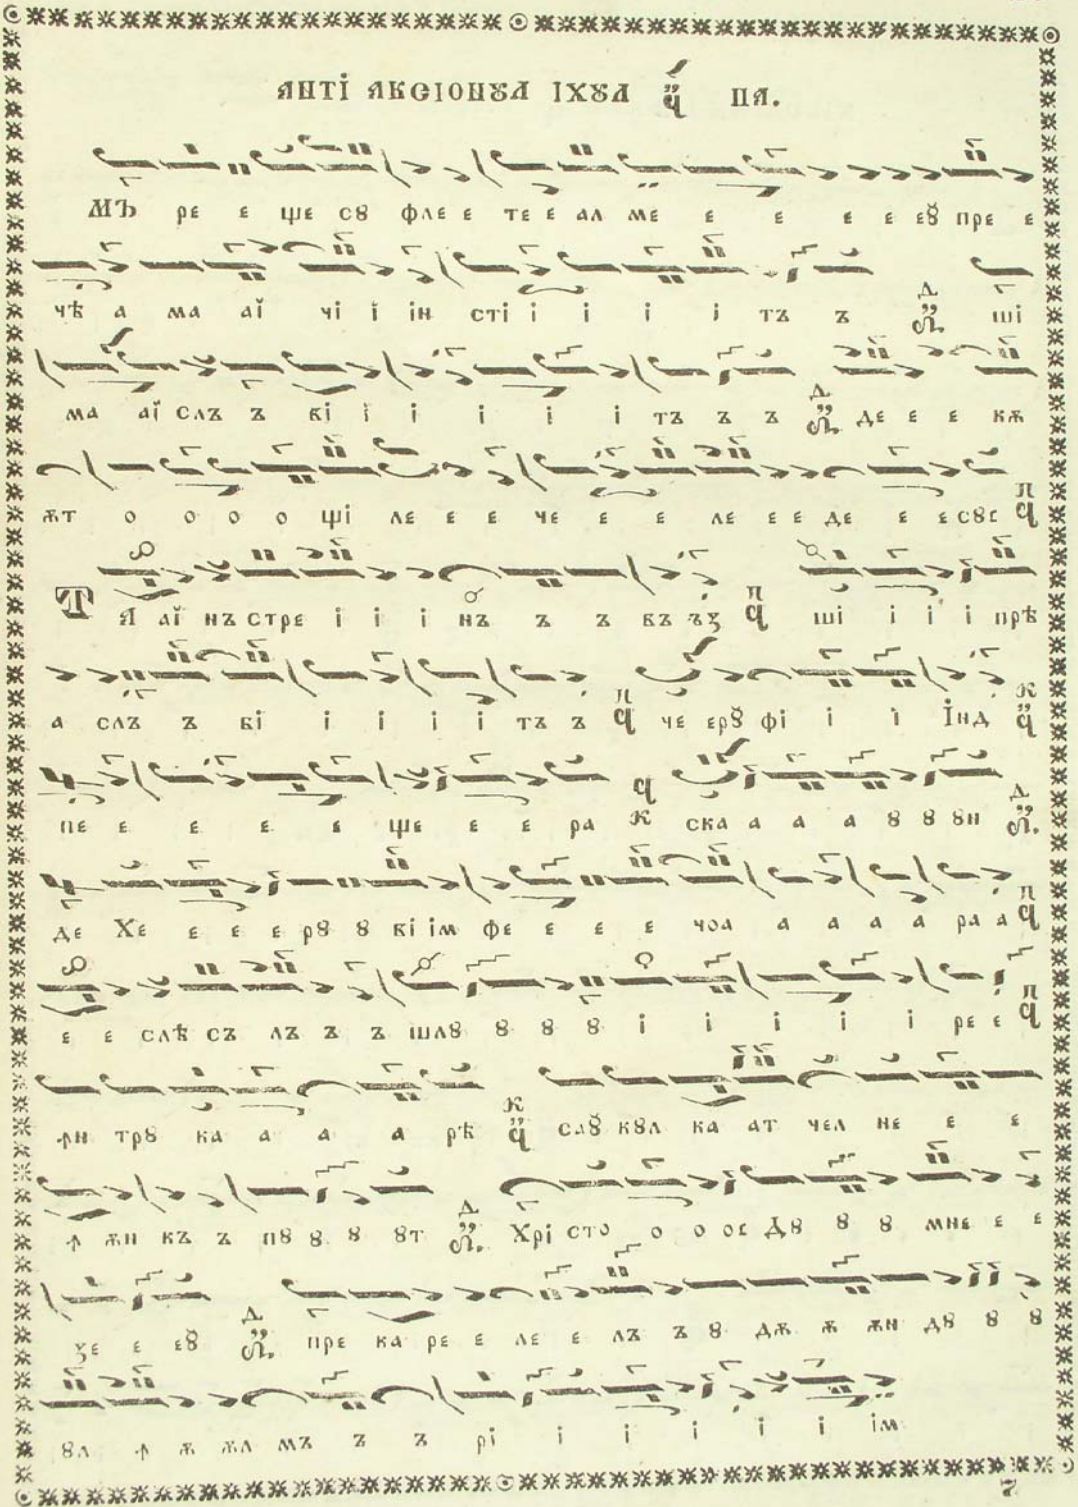 АНТІ АКСІОНꙋЛ ІХꙋЛ ПА.
МЪ ре е ще сꙋ фле е те е ал ме е е е е еꙋ̆ пре е
чѣ а ма аĭ чі ĭ ін сті і і і і тъ ъ ші
ма аĭ слъ ъ ві ĭ і і і і тъ ъ ъ де е е кѫ
ѫт о о о о ші ле е е че е е ле е е де е е сꙋс
Та аĭ нъ стре і і і нъ ъ ъ въ ъ ъз ші і і і прѣ
а слъ ъ ві і і і і тъ ъ че ерꙋ̆ фі і і Інд
пе е е е е ще е е ра ска а а а ꙋ ꙋ ꙋн
де Хе е е е рꙋ ꙋ ві ім фе е е е чоа а а а а ра а
е е слѣ съ лъ ъ ъ шлꙋ ꙋ ꙋ ꙋ і і і і і ре е
ꙟн трꙋ ка а а а рѣ саꙋ̆ кꙋл ка ат чел не е е
ꙟ ѫн къ ъ пꙋ ꙋ ꙋ ꙋт Хрі сто о о ос Дꙋ ꙋ ꙋ мне е е
зе е еꙋ̆ пре ка ре е ле е лъ ъ ꙋ дѫ ѫ ѫн дꙋ ꙋ ꙋ
ꙋл ꙟ ѫ ѫл мъ ъ ъ рі і і і і і ім